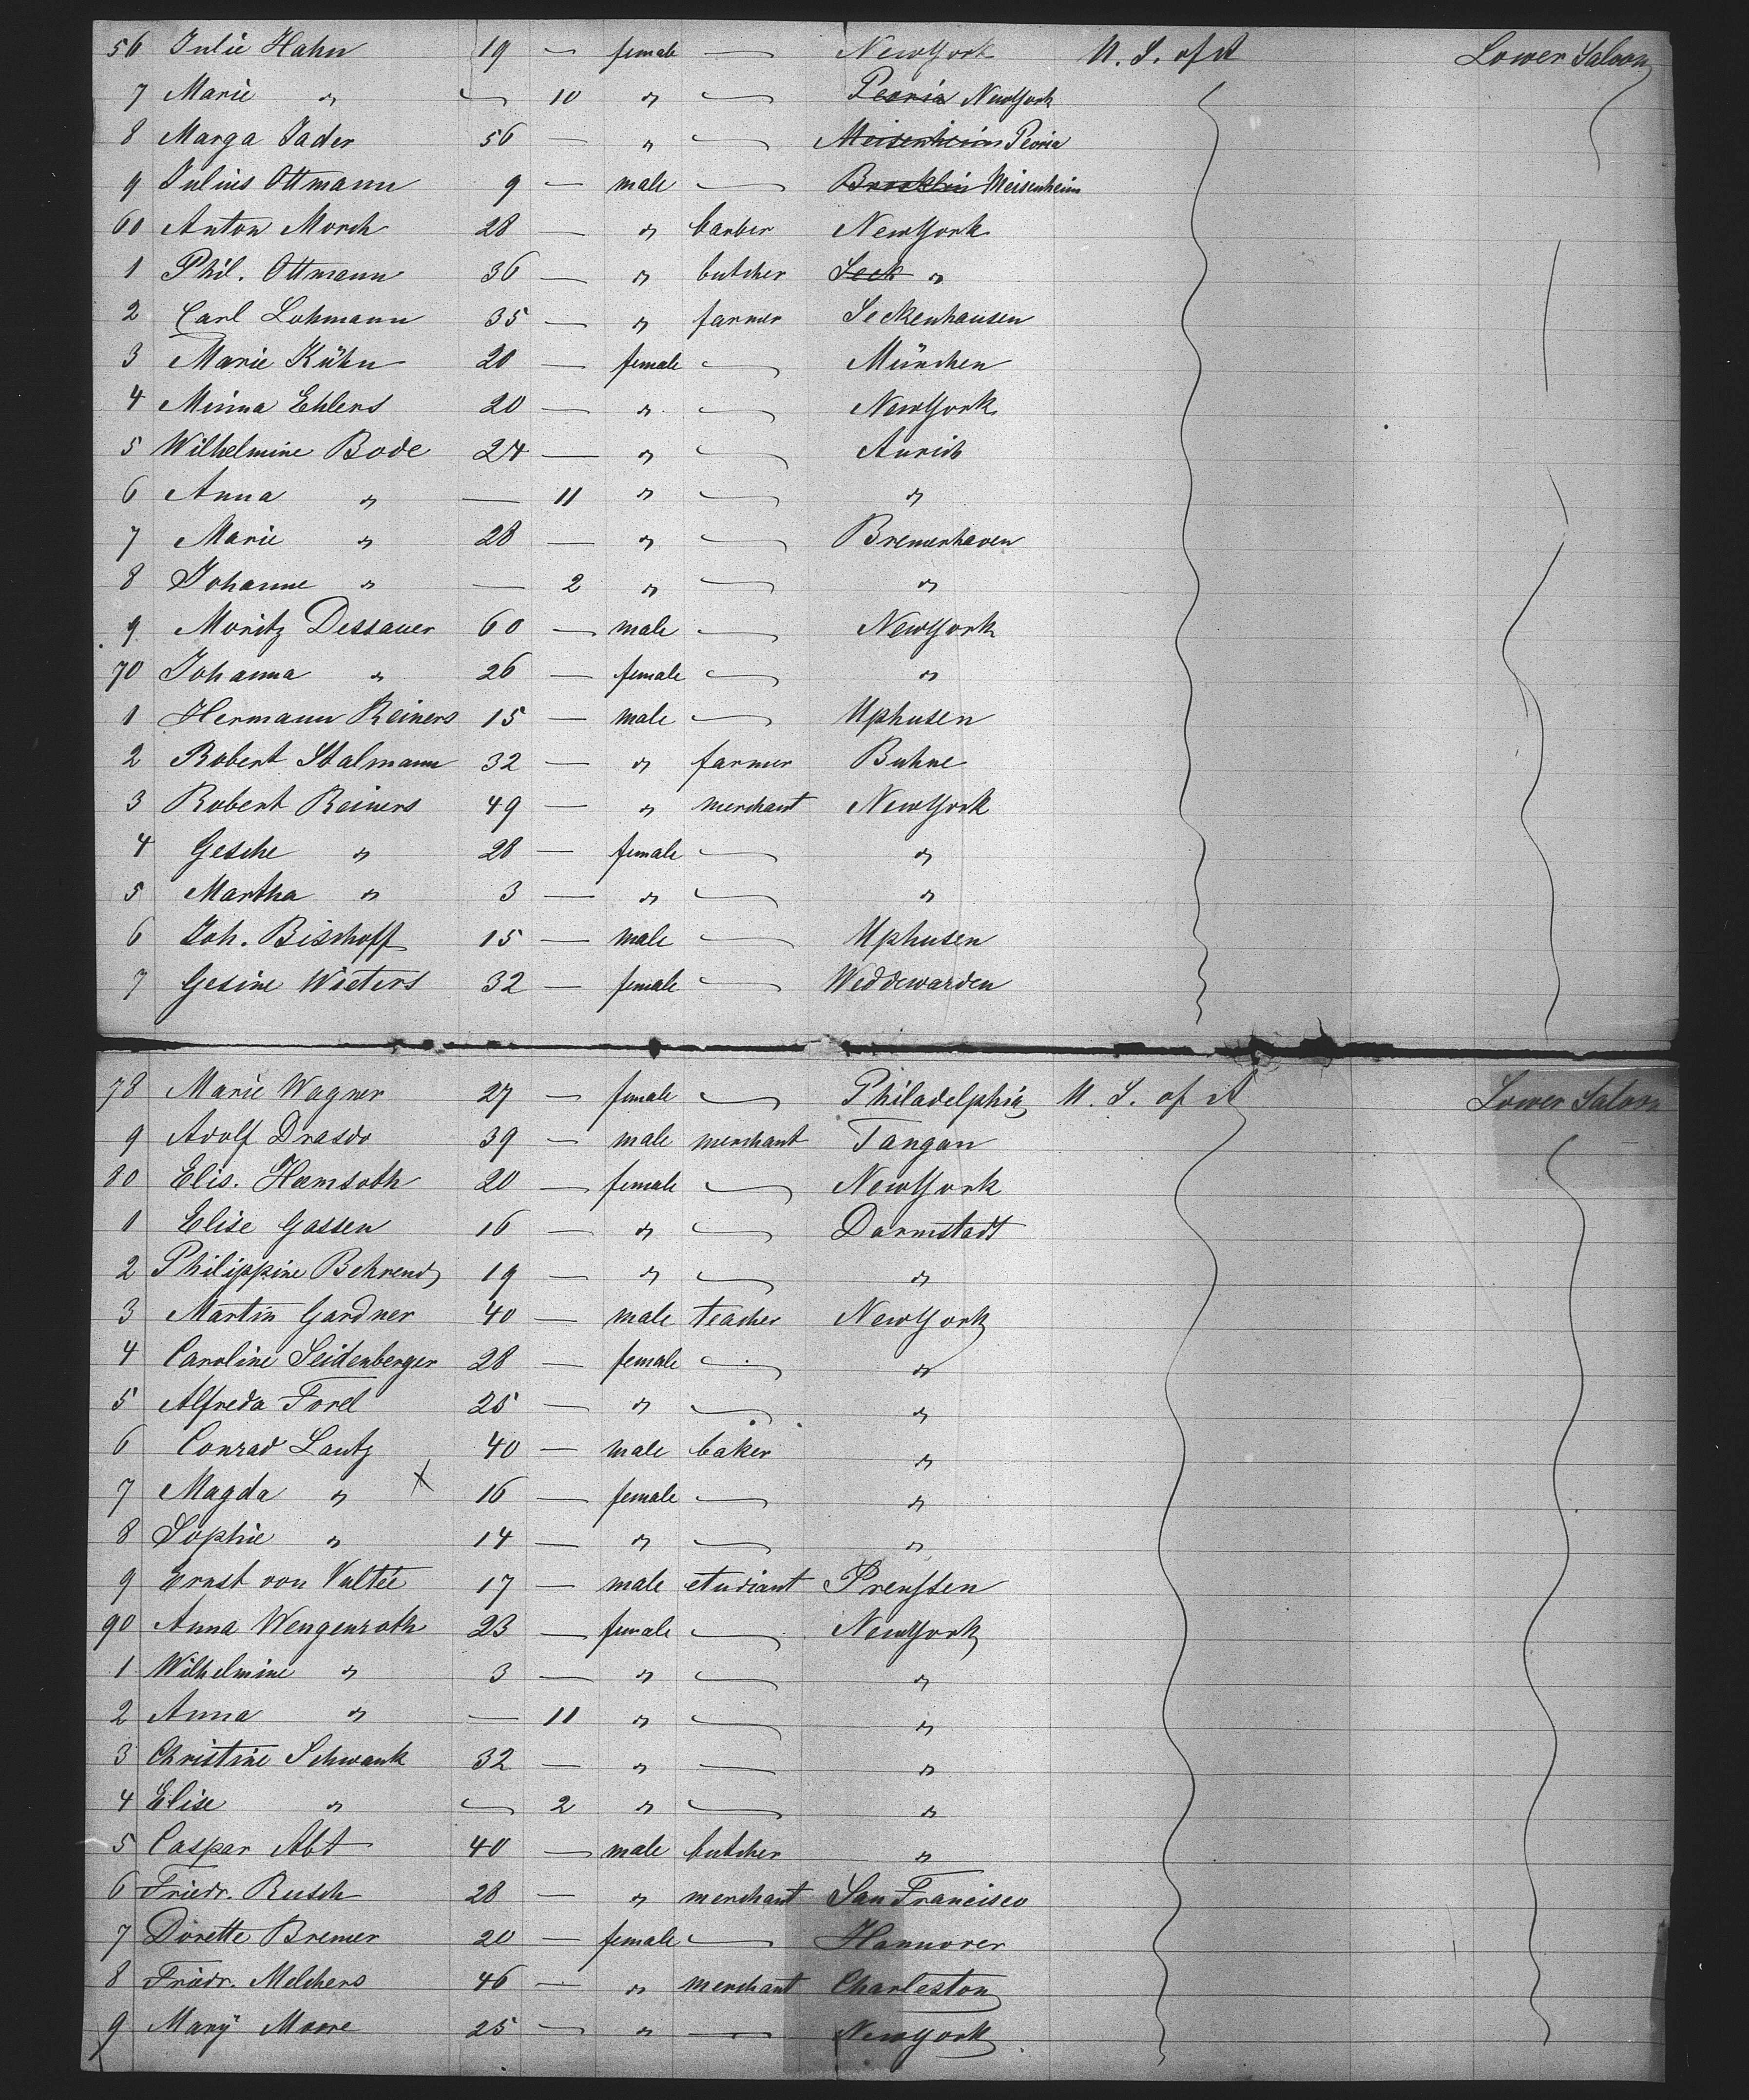 56 Julie Hahn 19 — female — NewYork U. S. of A Lower Saloon
7 Marie " — 10 " — Peoria NewYork
8 Marga Jader 56 — " — Meisenheim Peoria
9 Julius Ottmann 9 — male — Brooklin Meisenheim
60 Anton Morch 28 — " barber NewYork
1 Phil. Ottmann 36 — " butcher Seck "
2 Carl Lohmann 35 — " farmer Seckenhausen
3 Marie Kühn 20 — female — München
4 Minna Ehlers 20 — " — NewYork
5 Wilhelmine Bode 24 — " — Aurich
6 Anna " — 11 " — "
7 Marie " 28 — " — Bremerhaven
8 Johanne " — 2 " — "
9 Moritz Dessauer 60 — male — NewYork
70 Johanna " 26 — female — "
1 Hermann Reiners 15 — male — Uphusen
2 Robert Stalmann 32 — " farmer Buhne
3 Robert Reiners 49 — " merchant NewYork
4 Gesche " 28 — female — "
5 Martha " 3 — " — "
6 Joh. Bischoff 15 — male — Uphusen
7 Gesine Wieters 32 — female — Weddewarden
78 Marie Wagner 27 — female — Philadelphia U. S. of A Lower Saloon
9 Adolf Drasdo 39 — male merchant Tangan
80 Elis. Hemsoth 20 — female — NewYork
1 Elise Gassen 16 — " — Darmstadt
2 Philippine Behrend 19 — " — "
3 Martin Gardner 40 — male teacher NewYork
4 Caroline Seidenberger 28 — female — "
5 Alfreda Forel 25 — " — "
6 Conrad Lautz 40 — male baker "
7 Magda " x 16 — female — "
8 Sophie " 14 — " — "
9 Ernst von 17 — male etudiant Preussen
90 Anna Wengenroth 23 — female — NewYork
1 Wilhelmine " 3 — " — "
2 Anna " — 11 " — "
3 Christine Schwank 32 — " — "
4 Elise " — 2 " — "
5 Caspar Abt 40 — male butcher "
6 Friedr. Rusch 28 — " merchant San Francisco
7 Dorette Bremer 20 — female — Hannover
8 Friedr. Melchers 46 — " merchant Charleston
9 Mary Moore 25 — " — NewYork